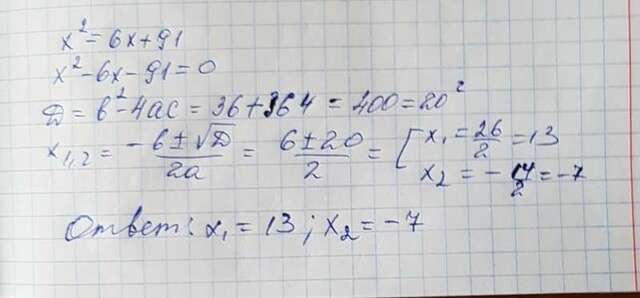 x² = 6x + 91
x² - 6x - 91 = 0
D = b² - 4ac = 36 + 364 = 400 = 20²
x₁,₂ = (-b ± √D)/2a = (6 ± 20)/2 = [ x₁ = 26/2 = 13
x₂ = -14/2 = -7
Ответ: x₁ = 13; x₂ = -7